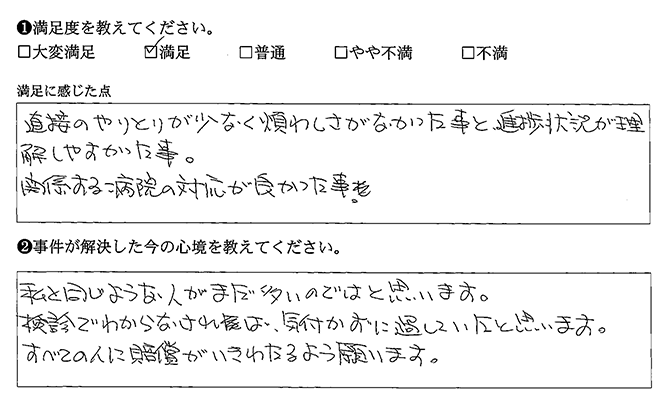 ❶満足度を教えてください。
□大変満足 ☑満足 □普通 □やや不満 □不満
満足に感じた点
直接のやりとりが少なく煩わしさがなかった事と、進捗状況が理
解しやすかった事。
関係する病院の対応が良かった事も。
❷事件が解決した今の心境を教えてください。
私と同じような人がまだ多いのではと思います。
検診でわからなければ、気付かずに過していたと思います。
すべての人に賠償がいきわたるよう願います。